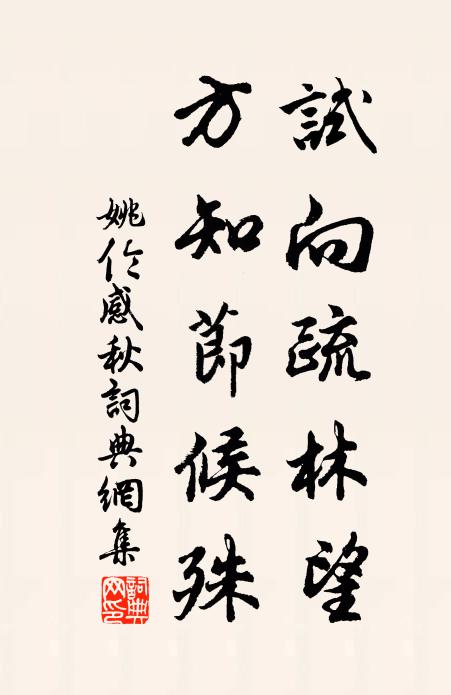 試向疏林望
方知節候殊
姚倫感秋詞典網集
詞典網印